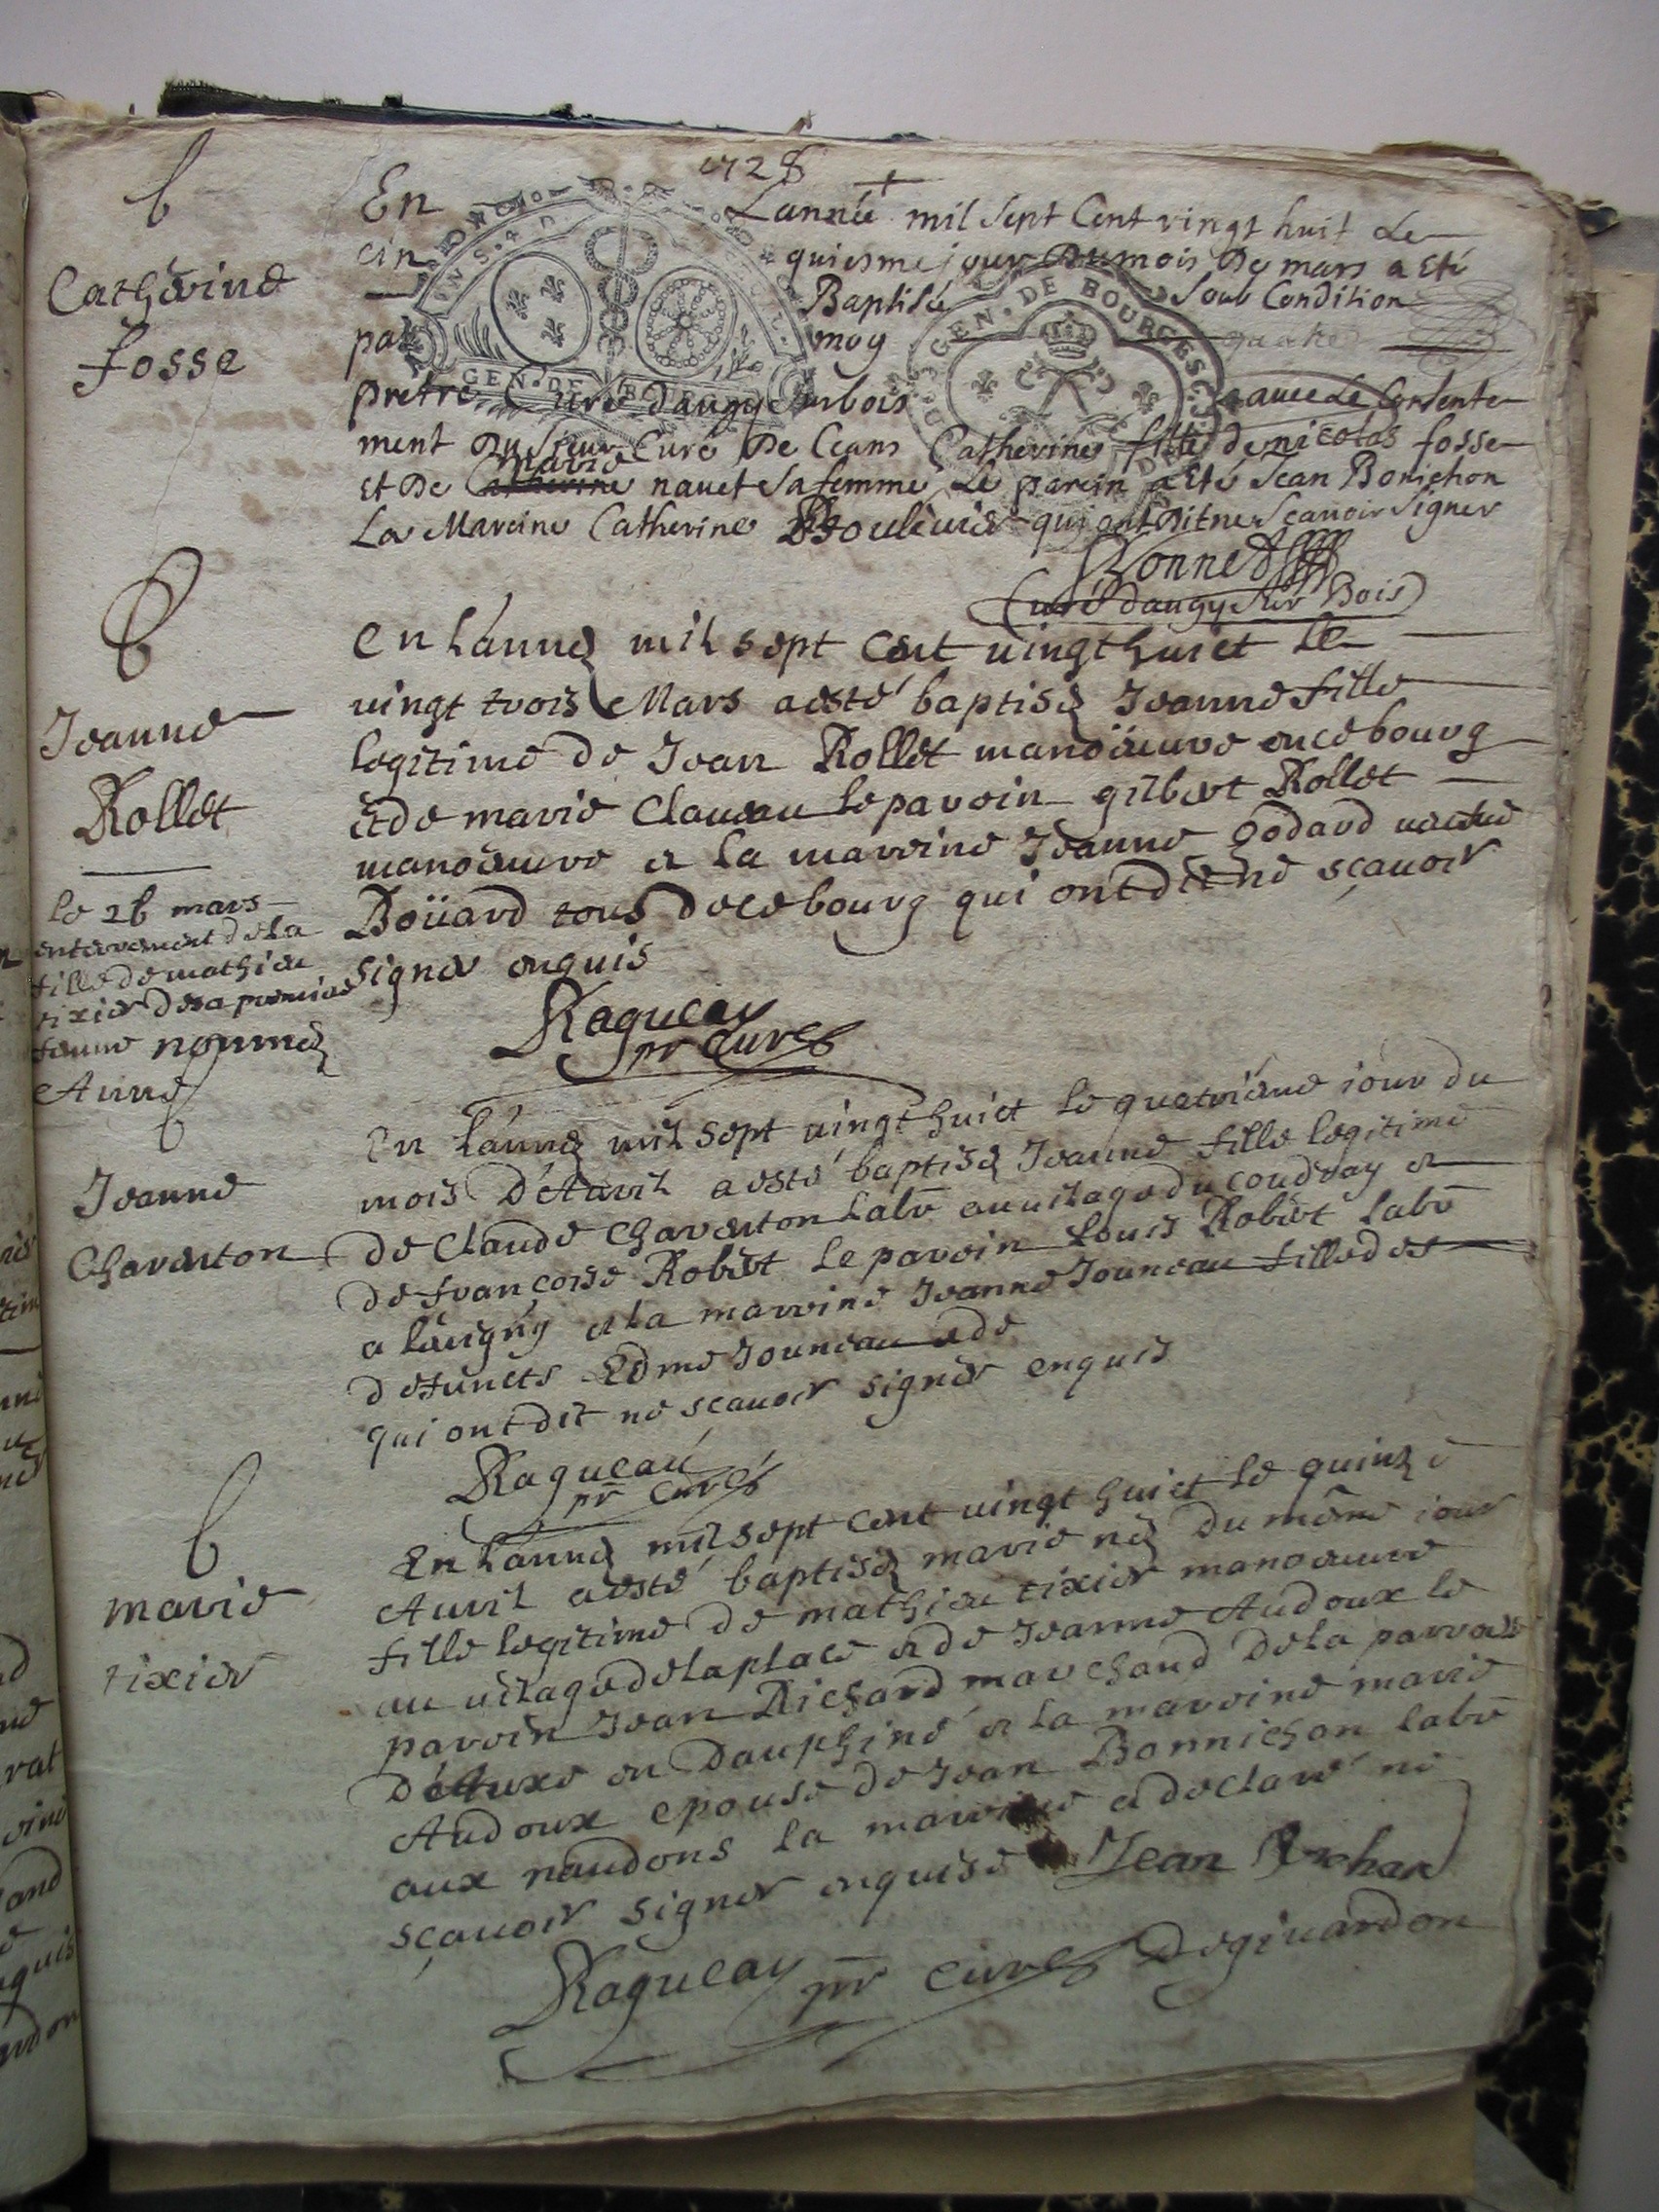 1728
b
Catherine
fosse
En Lannée mil Sept Cent vingt huit Le
cinquiesme jour Du mois De mars a Eté
Baptisée Soub Condition
par moy
prêtre Curé daugy Surbois avec Le Consente
ment Du Sieur Curé De Ceans Catherine fille de nicolas fosse
marie
Et De Catherine navet Sa femme Le parein a Eté Jean Bonichon
La Mareine Catherine qui ont Dit ne Scavoir Signer
Bonnet
Curé daugy Sur Bois
GEN. DE BOURGES
GEN. DE BOURGES
b
Jeanne
Rollet
En L'année mil sept cent vingt huict le
vingt trois Mars a esté baptisée Jeanne fille
legitime de Jean Rollet manoeuvre en ce bourg
et de marie Claveau le parein gilbert Rollet
manoeuvre et la mareine Jeanne godard
Boüard tous de ce bourg qui ont dit ne sçavoir
signer enquis
Ragueau
pr Curé
le 26 mars
enterrement de la
fille de mathieu
tixier de sa premiere
femme nommée
Anne
b
Jeanne
Chaventon
En L'année mil sept vingt huict le quatriéme iour du
mois D'Avril a esté baptisée Jeanne fille legitime
de Claude Chaventon Labr au vilage du coudray et
de françoise Robert le parein Louis Robert labr
a Lavigny et la mareine Jeanne Jouneau fille des
defuncts Edme Jouneau et de
qui ont dit ne scavoir signer enquis
Ragueau
pr Curé
b
marie
tixier
En L'année mil sept cent vingt huict le quinze
Avril a esté baptisée marie née du même iour
fille legitime de mathieu tixier manoeuvre
au vilage de la place et de Jeanne Audoux le
parein Jean Richard marchand De la
en Dauphiné et la mareine marie
Audoux epouse de Jean Bonnichon labr
aux naudons la mareine a declaré ne
sçavoir signer enquise Jean Richard
Ragueau pr Curé Degivardon